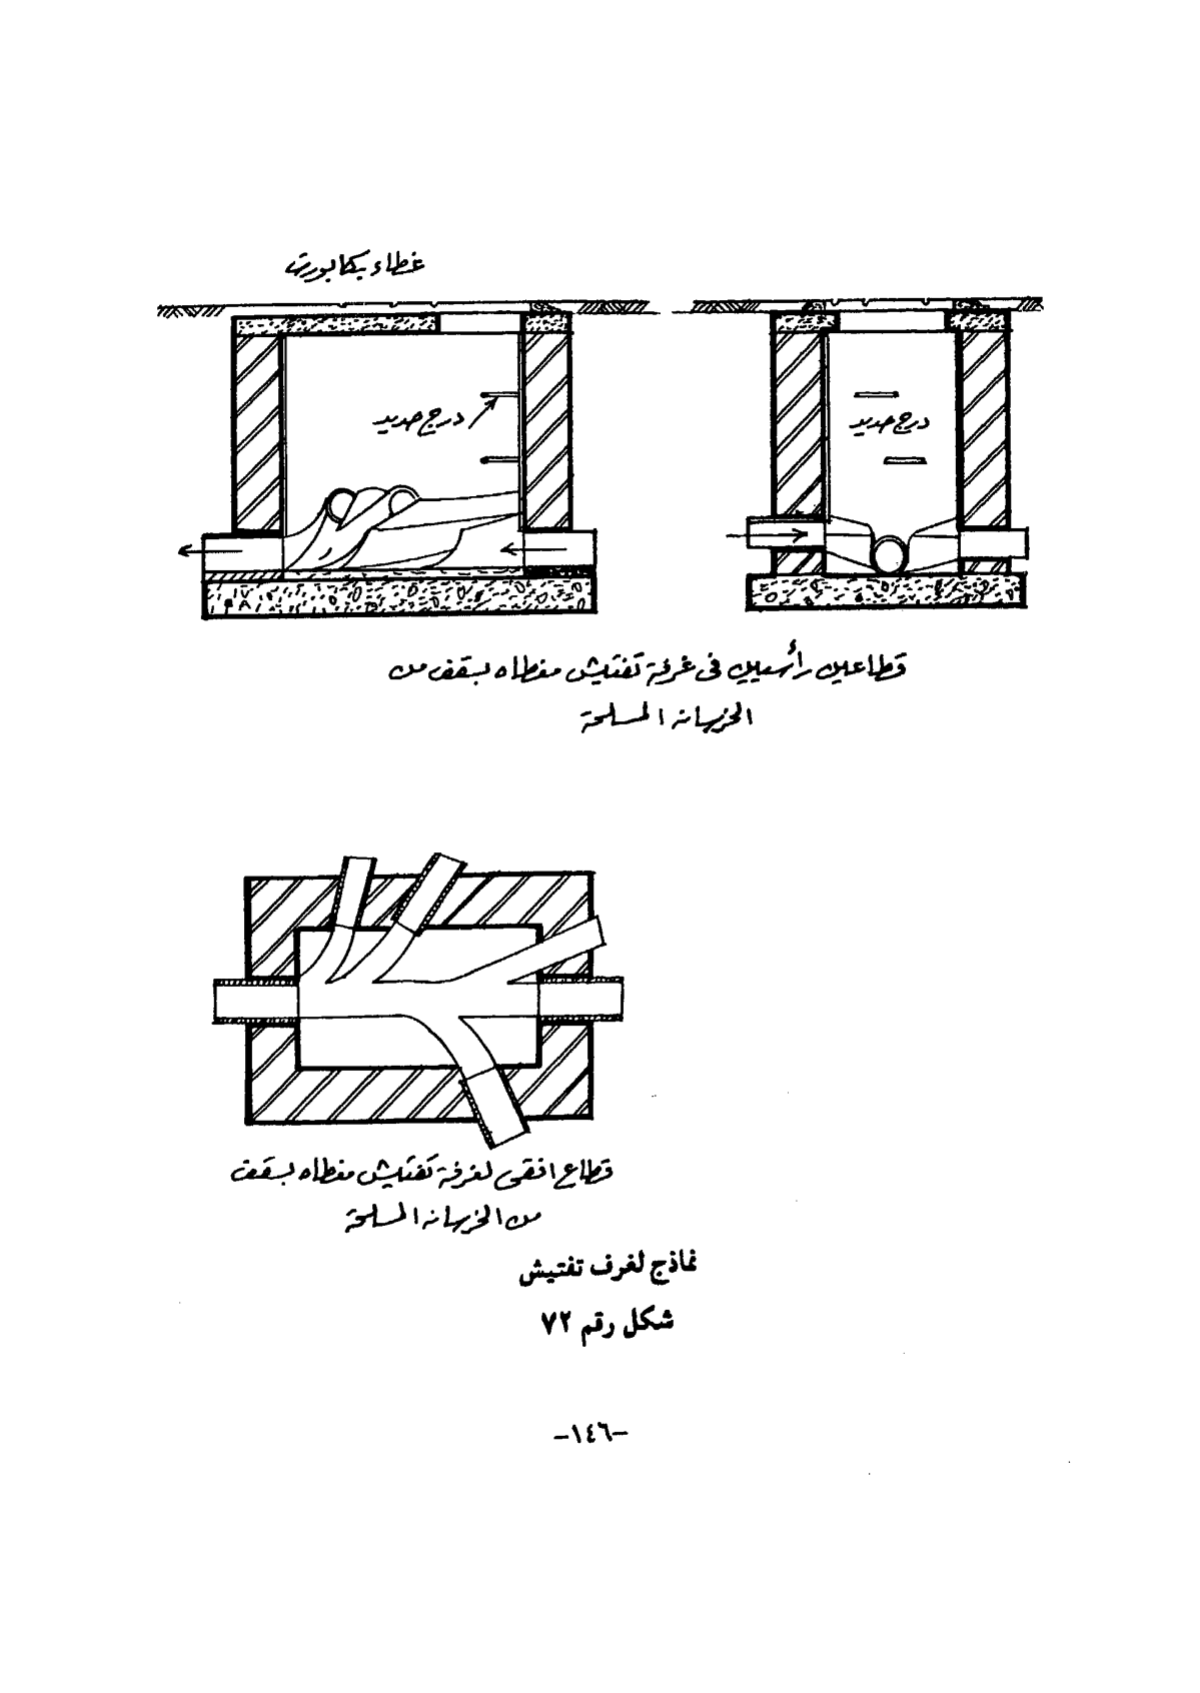 غطاء بكابورت
درج حديد
درج حديد
قطاعين رأسيين فى غرفة تفتيش مغطاه بسقف من
الخرسانه المسلحة
قطاع افقى لغرفة تفتيش مغطاه بسقف
من الخرسانه المسلحة
نماذج لغرف تفتيش
شكل رقم ٧٢
-١٤٦-